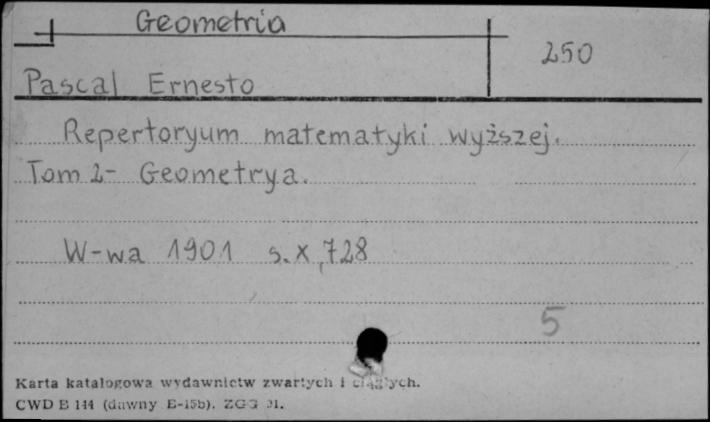 Geometria
250
Pascal Ernesto
Repertoryum matematyki wyższej.
Tom 2- Geometrya.
W-wa 1901 s. X, 728
5
Karta katalogowa wydawnictw zwartych i ciągłych.
CWD E 144 (dawny E-15b). ZGG